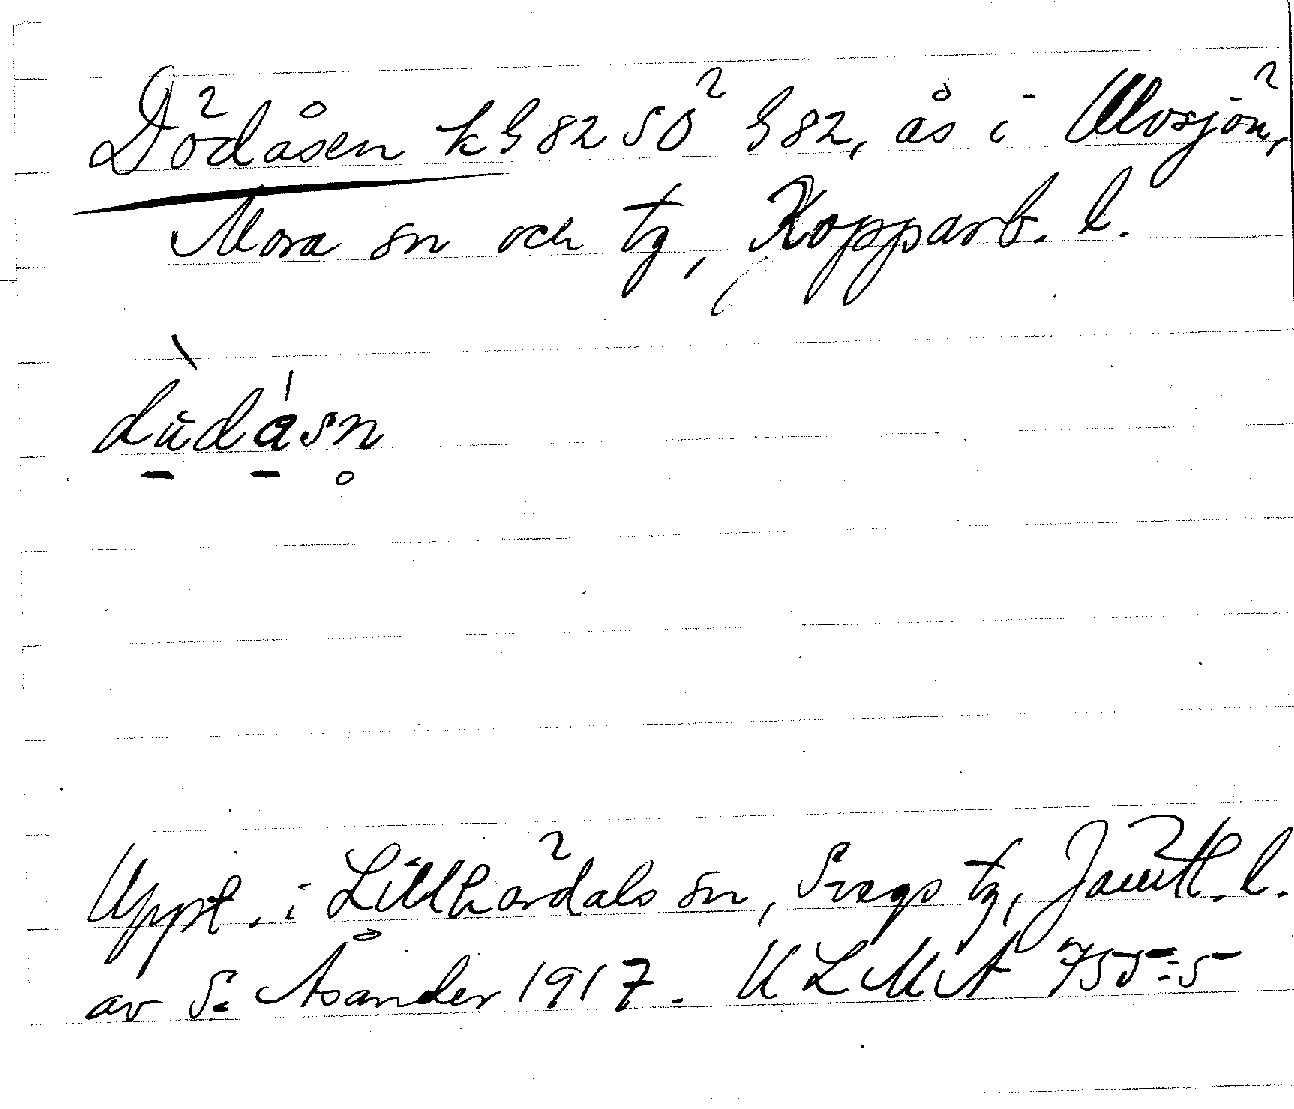 Dödåsen kG82SÖ G82, ås i Ulvsjön,
Mora sn och tg, Kopparb. l.
dùdásn̥
Uppt. i Lillhärdals sn, Svegs tg, Jämtl. l.
av S. Åsander 1917. ULMA 755:5